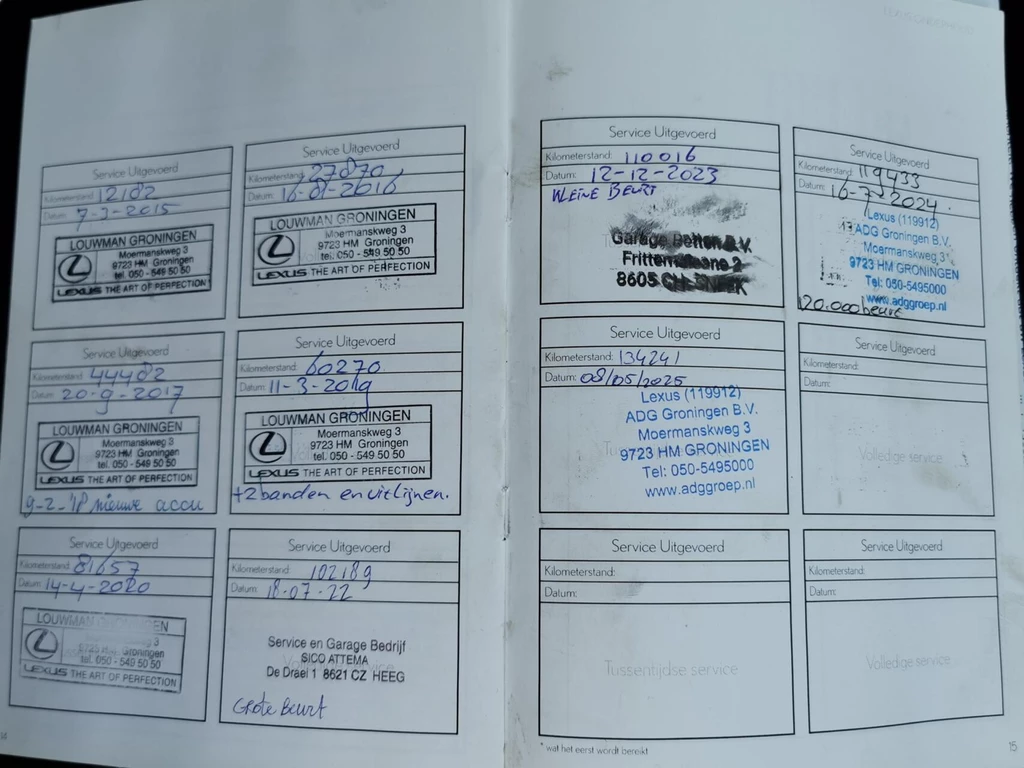 Service Uitgevoerd
Kilometerstand: 12182
Datum: 7-3-2015
LOUWMAN GRONINGEN
Moermanskweg 3
9723 HM Groningen
tel. 050 - 549 50 50
LEXUS THE ART OF PERFECTION
Service Uitgevoerd
Kilometerstand: 27870
Datum: 16-01-2016
LOUWMAN GRONINGEN
Moermanskweg 3
9723 HM Groningen
tel. 050 - 549 50 50
LEXUS THE ART OF PERFECTION
Service Uitgevoerd
Kilometerstand: 44482
Datum: 20-9-2017
LOUWMAN GRONINGEN
Moermanskweg 3
9723 HM Groningen
tel. 050 - 549 50 50
LEXUS THE ART OF PERFECTION
9-2-'18 nieuwe accu
Service Uitgevoerd
Kilometerstand: 60270
Datum: 11-3-2019
LOUWMAN GRONINGEN
Moermanskweg 3
9723 HM Groningen
tel. 050 - 549 50 50
LEXUS THE ART OF PERFECTION
+2 banden en uitlijnen.
Service Uitgevoerd
Kilometerstand: 81657
Datum: 14-4-2020
LOUWMAN GRONINGEN
3
9723 HM Groningen
tel. 050 - 549 50 50
LEXUS THE ART OF PERFECTION
Service Uitgevoerd
Kilometerstand: 102189
Datum: 18-07-22
Service en Garage Bedrijf
SICO ATTEMA
De Draei 1 8621 CZ HEEG
Grote Beurt
Service Uitgevoerd
Kilometerstand: 110016
Datum: 12-12-2023
KLEINE BEURT
Garage B.V.
8605 SNEEK
Service Uitgevoerd
Kilometerstand: 119433
Datum: 16-7-2024.
Lexus (119912)
ADG Groningen B.V.
Moermanskweg 3
9723 HM GRONINGEN
Tel: 050-5495000
www.adggroep.nl
120.000 beurt
Service Uitgevoerd
Kilometerstand: 134241
Datum: 08/05/2025
Lexus (119912)
ADG Groningen B.V.
Moermanskweg 3
9723 HM GRONINGEN
Tel: 050-5495000
www.adggroep.nl
Service Uitgevoerd
Kilometerstand:
Datum:
Volledige service
Service Uitgevoerd
Kilometerstand:
Datum:
Tussentijdse service
Service Uitgevoerd
Kilometerstand:
Datum:
Volledige service
* wat het eerst wordt bereikt
15